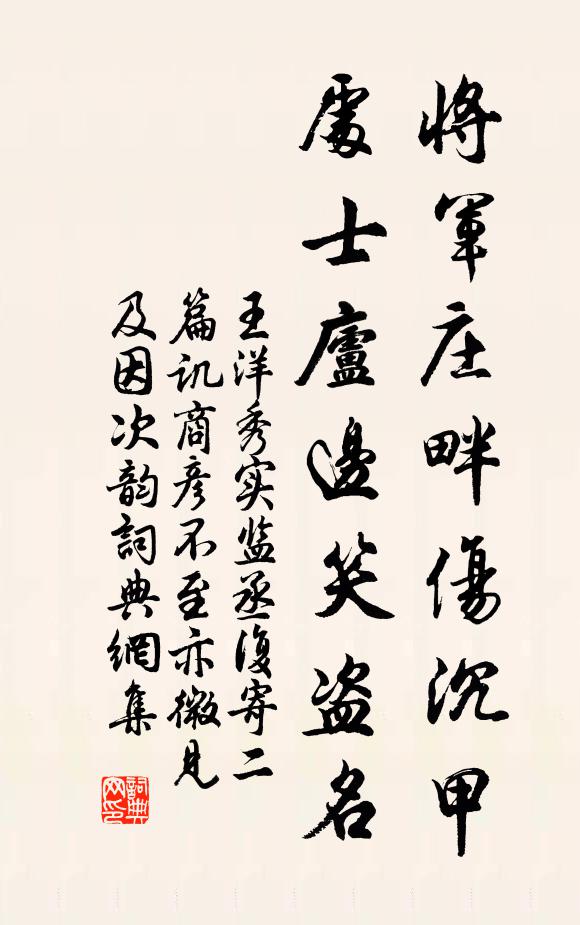 將軍庄畔傷沉甲
處士廬邊笑盗名
王洋秀实监丞復寄二
篇讥商彦不至亦微見
及因次韵詞典網集
詞典网印